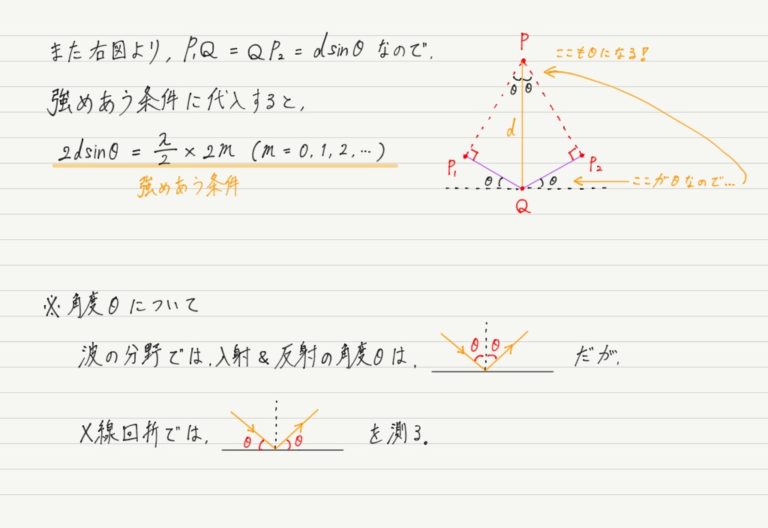 また右図より, P₁Q = QP₂ = dsinθ なので,
強めあう条件に代入すると,
2dsinθ = λ/2 × 2m (m = 0, 1, 2, …)
強めあう条件
P
ここもθになる!
θ θ
d
P₁
P₂
θ θ
ここがθなので…
Q
※角度θについて
波の分野では,入射&反射の角度θは, θ θ だが,
X線回折では, θ θ を測る.